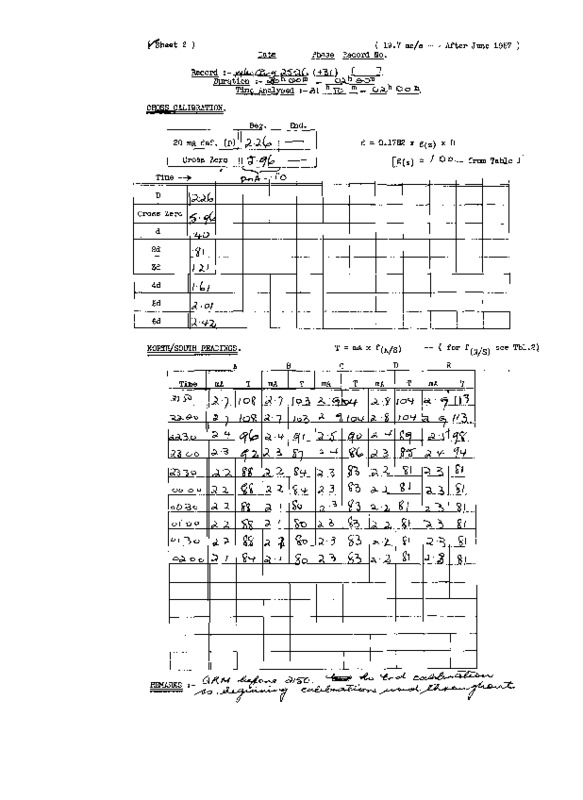 (Sheet 2 ) ( 19.7 mc/s -- - After June 1967 )
Date Phase Record No.
Record :- 25-26. (+31) [ ].
Duration :- 20 h 00 m - 02 h 00 m
Time Analysed :- 21 h 50 m - 02 h 00 m.
CROSS CALIBRATION.
Beg. End.
20 ma def. (D) 2.26 —
Cross Zero 5.96 —
d = 0.1782 x f(z) x D
[f(z) = 1.00 from Table 1
Time -->
D 2.26
Cross Zero 5.96
d .40
2d .81
3d 1.21
4d 1.61
5d 2.01
6d 2.42
NORTH/SOUTH READINGS. T = mA x f(N/S) -- ( for f(N/S) see Tbl.2)
A B C D E
Time mA T mA T mA T mA T mA T
2150 2.7 108 2.7 103 2.9 104 2.8 104 2.9 113
2200 2.7 108 2.7 103 2.9 104 2.8 104 2.9 113
2230 2.4 96 2.4 91 2.5 90 2.4 89 2.5 98
2300 2.3 92 2.3 87 2.4 86 2.3 85 2.4 94
2330 2.2 88 2.2 84 2.3 83 2.2 81 2.3 81
0000 2.2 88 2.2 84 2.3 83 2.2 81 2.3 81
0030 2.2 88 2.1 80 2.3 83 2.2 81 2.3 81
0100 2.2 88 2.1 80 2.3 83 2.2 81 2.3 81
0130 2.2 88 2.1 80 2.3 83 2.2 81 2.3 81
0200 2.1 84 2.1 80 2.3 83 2.2 81 2.3 81
REMARKS :- QRM before 2150. No End calibration
so beginning calibrations used throughout